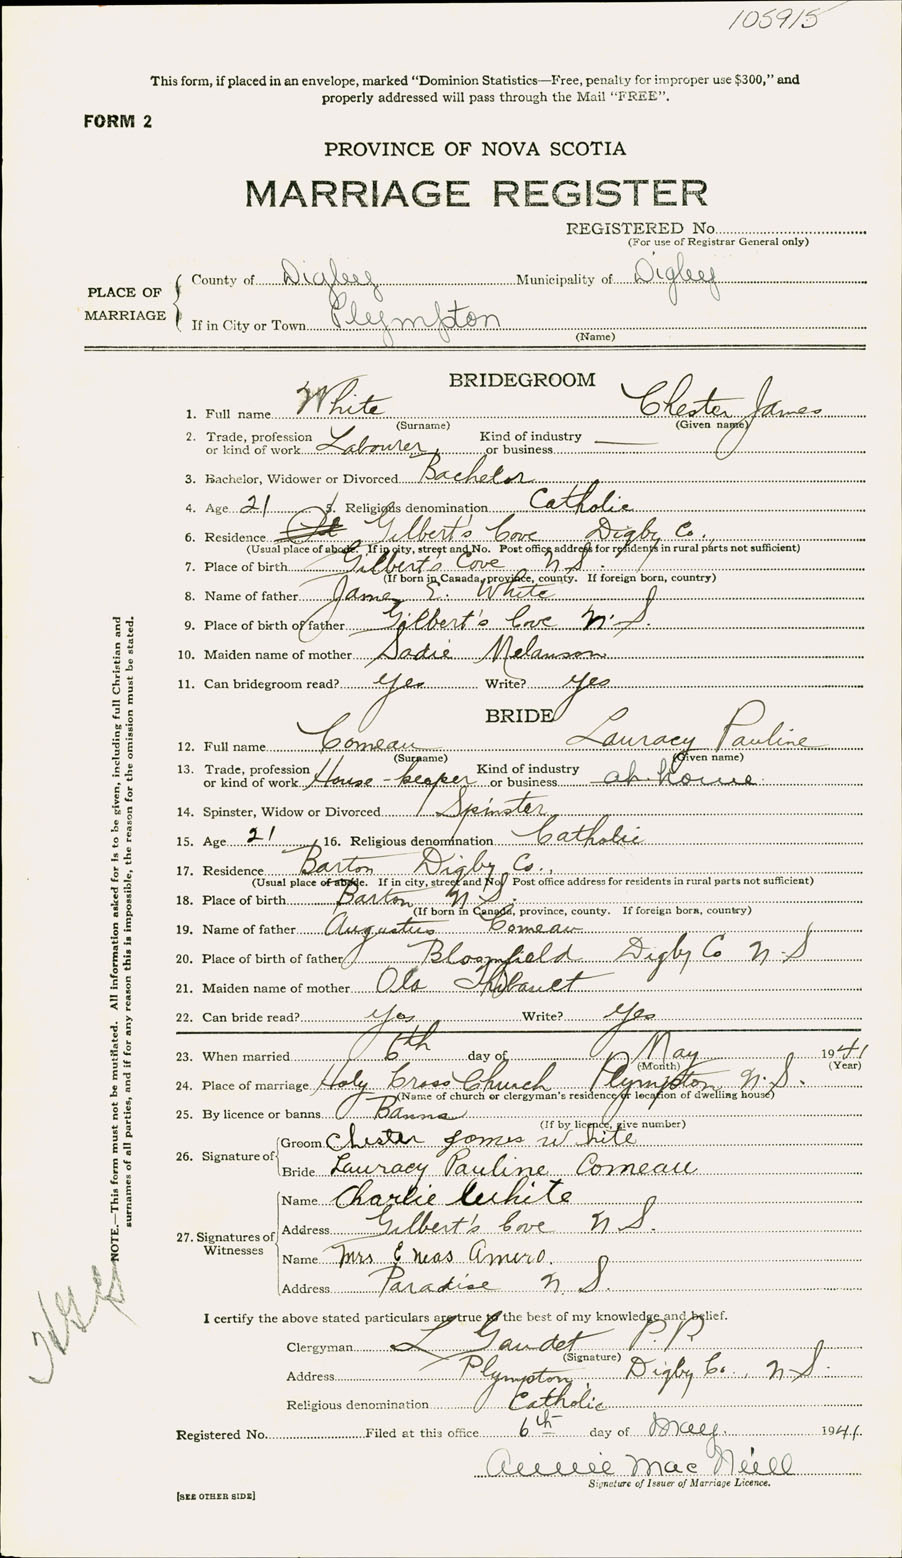 105915
This form, if placed in an envelope, marked "Dominion Statistics—Free, penalty for improper use $300," and
properly addressed will pass through the Mail "FREE".
FORM 2
PROVINCE OF NOVA SCOTIA
MARRIAGE REGISTER
REGISTERED No.
(For use of Registrar General only)
PLACE OF MARRIAGE
County of Digby Municipality of Digby
If in City or Town Plympton
(Name)
BRIDEGROOM
1. Full name White Chester James
(Surname) (Given name)
2. Trade, profession or kind of work Labourer Kind of industry or business —
3. Bachelor, Widower or Divorced Bachelor
4. Age 21 5. Religious denomination Catholic
6. Residence Gilbert's Cove Digby Co.,
(Usual place of abode. If in city, street and No. Post office address for residents in rural parts not sufficient)
7. Place of birth Gilbert's Cove N.S.
(If born in Canada, province, county. If foreign born, country)
8. Name of father James E. White
9. Place of birth of father Gilbert's Cove N.S.
10. Maiden name of mother Sadie Melanson
11. Can bridegroom read? yes Write? yes
BRIDE
12. Full name Comeau Lauracy Pauline
(Surname) (Given name)
13. Trade, profession or kind of work House-keeper Kind of industry or business at home
14. Spinster, Widow or Divorced Spinster
15. Age 21 16. Religious denomination Catholic
17. Residence Barton Digby Co.,
(Usual place of abode. If in city, street and No. Post office address for residents in rural parts not sufficient)
18. Place of birth Barton N.S.
(If born in Canada, province, county. If foreign born, country)
19. Name of father Augustus Comeau
20. Place of birth of father Bloomfield Digby Co N.S
21. Maiden name of mother Ola Thibault
22. Can bride read? yes Write? yes
23. When married 6th day of May 1941
(Month) (Year)
24. Place of marriage Holy Cross Church Plympton, N.S.
(Name of church or clergyman's residence or location of dwelling house)
25. By licence or banns Banns
(If by licence, give number)
26. Signature of Groom Chester James White
Bride Lauracy Pauline Comeau
27. Signatures of Witnesses
Name Charlie White
Address Gilbert's Cove N.S.
Name Mrs Eneas Amero.
Address Paradise N.S.
I certify the above stated particulars are true to the best of my knowledge and belief.
Clergyman L Gaudet P.P.
(Signature)
Address Plympton, Digby Co., N.S.
Religious denomination Catholic
Registered No. Filed at this office 6th day of May. 1941.
Annie MacNeill
Signature of Issuer of Marriage Licence.
[SEE OTHER SIDE]
NOTE.—This form must not be mutilated. All information asked for is to be given, including full Christian and
surnames of all parties, and if for any reason this is impossible, the reason for the omission must be stated.